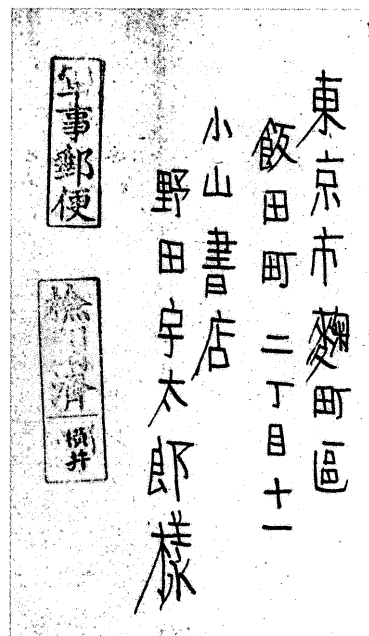 東京市麴町區
飯田町二丁目十一
小山書店
野田宇太郎様
軍事郵便
検閲済
横井